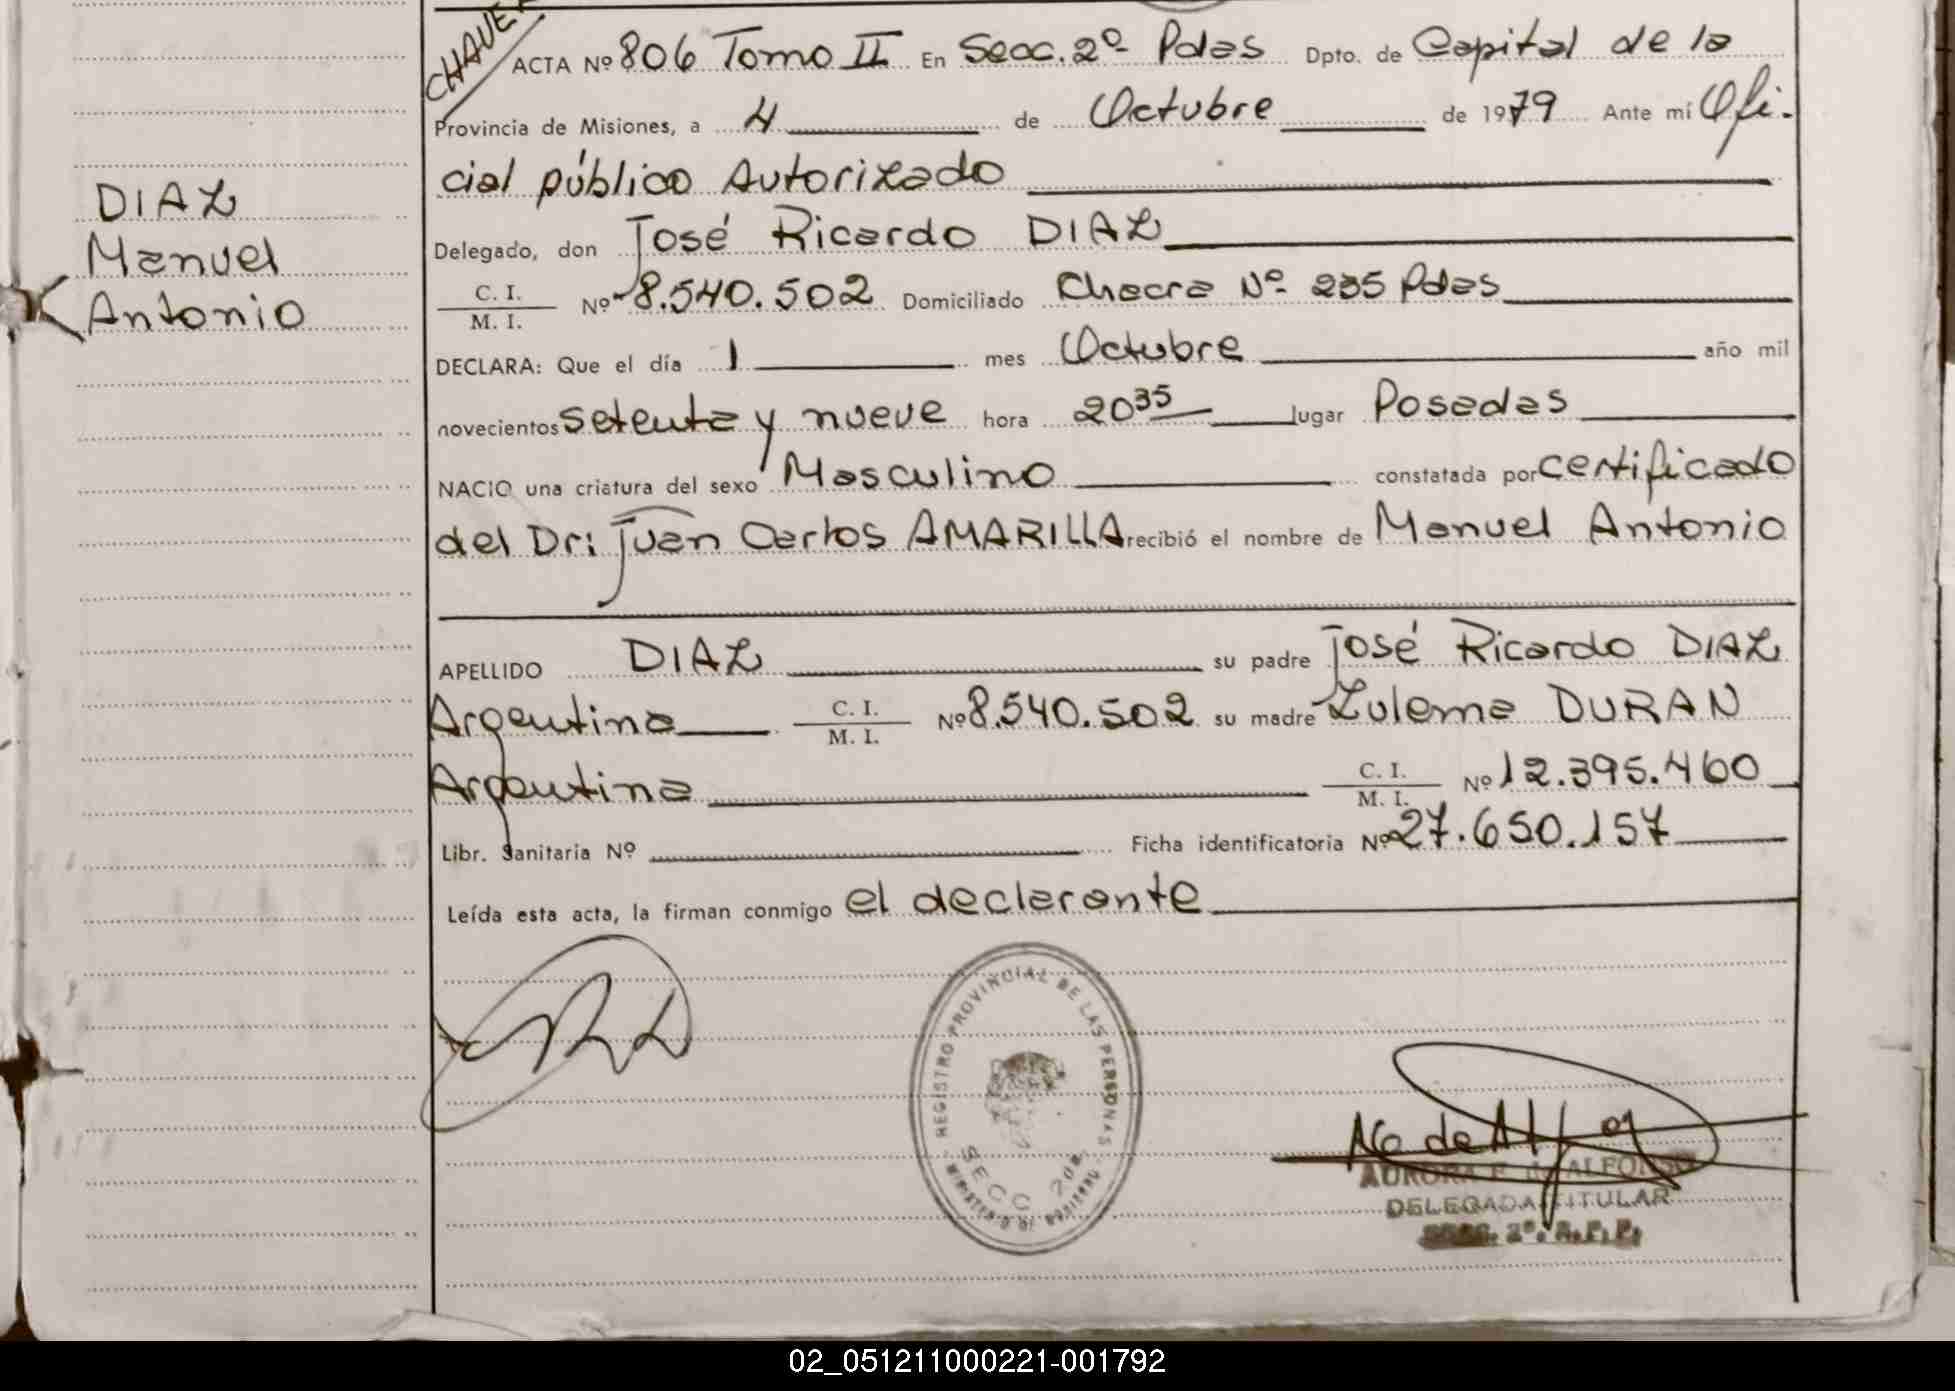 CHAVEZ
ACTA Nº 806 Tomo II En Secc. 2º Pdas Dpto. de Capital de la
Provincia de Misiones, a 4 de Octubre de 1979 Ante mí Ofi-
cial público Autorizado
DIAZ
Manuel
Antonio
Delegado, don José Ricardo DIAZ
C. I.
M. I. Nº 8.540.502 Domiciliado Chacra Nº 235 Pdas
DECLARA: Que el día 1 mes Octubre año mil
novecientos setenta y nueve hora 20 35 lugar Posadas
NACIO una criatura del sexo Masculino constatada por certificado
del Dr: Juan Carlos AMARILLA recibió el nombre de Manuel Antonio
APELLIDO DIAZ su padre José Ricardo DIAZ
Argentino C. I.
M. I. Nº 8.540.502 su madre Zulema DURAN
Argentina C. I.
M. I. Nº 12.395.460
Libr. Sanitaria Nº Ficha identificatoria Nº 27.650.157
Leída esta acta, la firman conmigo el declarante
REGISTRO PROVINCIAL DE LAS PERSONAS
SECC. 2da
AURORA F. de ALFONSO
DELEGADA TITULAR
SECC. 2º. R.P.P.
02_051211000221-001792